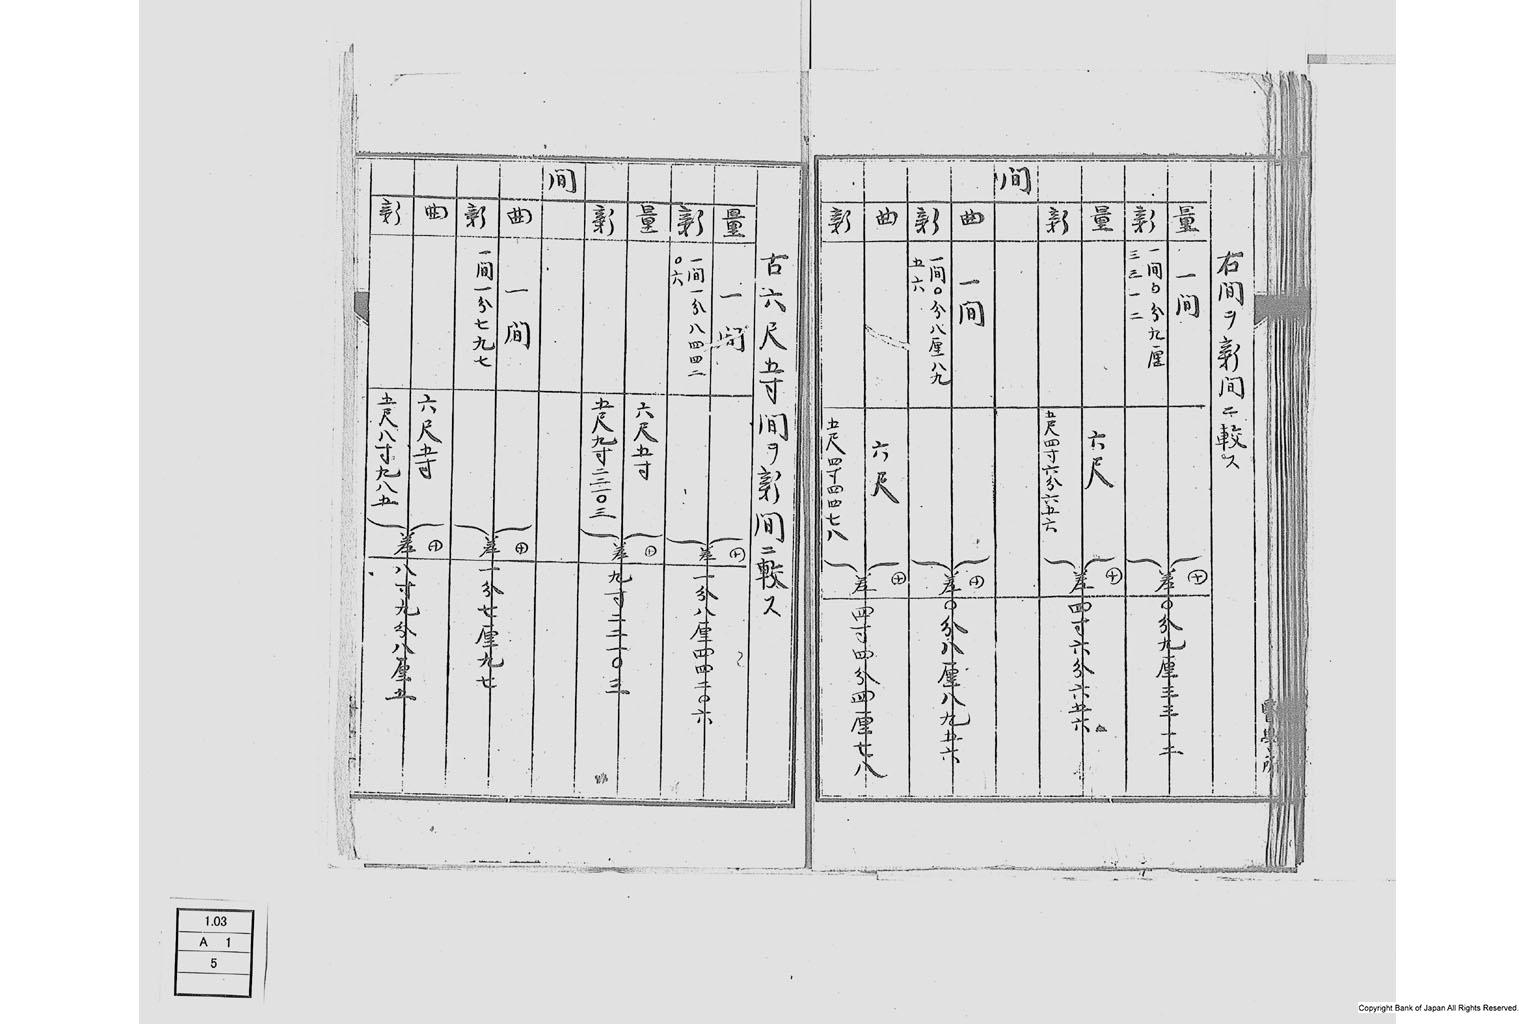 古間ヲ新間ニ較ス
間
量
一間
新
一間〇分九厘
三三一二
差〇分九厘三三一二
量
六尺
新
五尺四寸六分六五六
差四寸六分六五六
曲
一間
新
一間〇分八厘八九
五六
差〇分八厘八九五六
曲
六尺
新
五尺四寸四四七八
差四寸四分四厘七八
古六尺五寸間ヲ新間ニ較ス
間
量
一間
新
一間一分八四四二
〇六
差一分八厘四四二〇六
量
六尺五寸
新
差九寸二二一〇三
曲
一間
新
一間一分七九七
差一分七厘九七
曲
六尺五寸
新
五尺八寸九八五
差八寸九分八厘五
1.03
A 1
5
Copyright Bank of Japan All Rights Reserved.